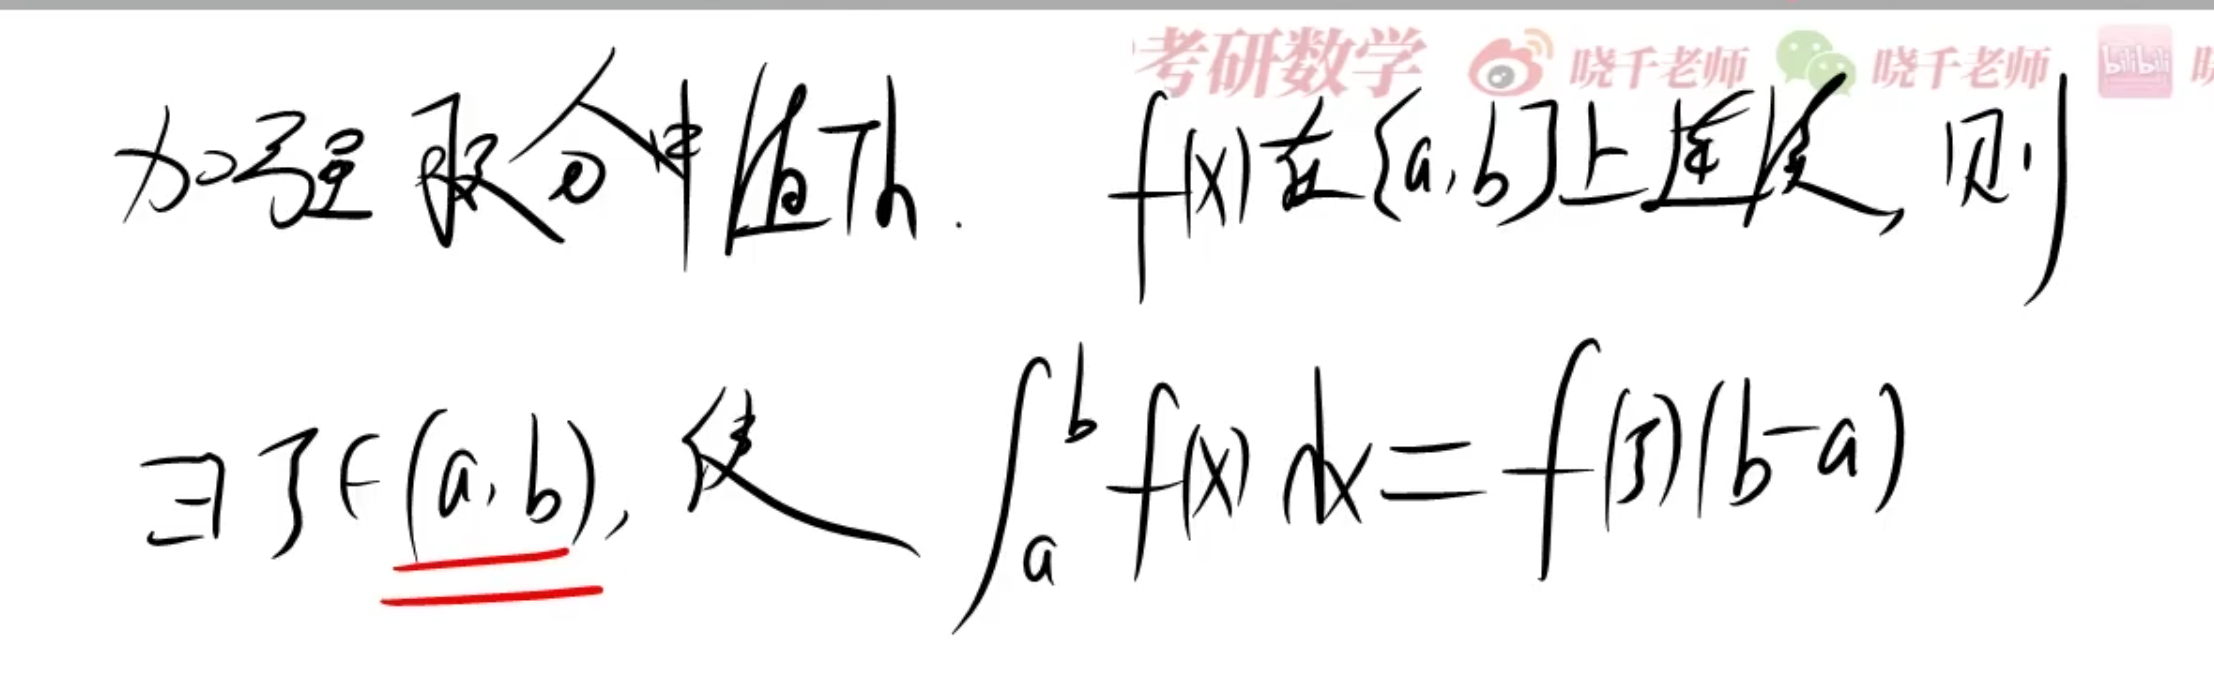 考研数学 晓千老师 晓千老师 bilibili
加强积分中值Th. f(x)在[a,b]上连续,则
∃ξ∈(a,b),使 ∫_a^b f(x)dx=f(ξ)(b-a)